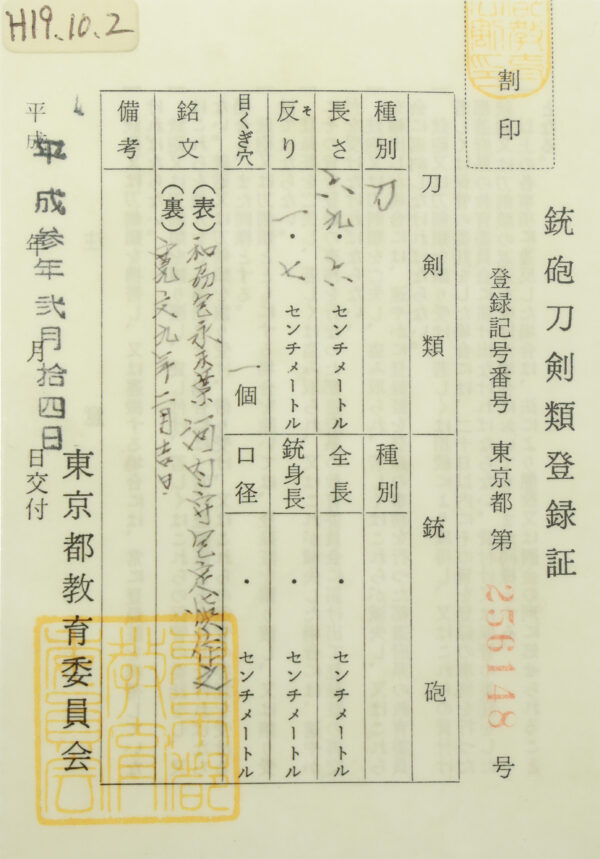 H19.10.2
割印
銃砲刀剣類登録証
登録記号番号 東京都 第 256148 号
刀剣類
銃砲
種別 刀
種別
長さ 六九・六 センチメートル
全長 ・ センチメートル
反り そ 一・七 センチメートル
銃身長 ・ センチメートル
目くぎ穴 一個
口径 ・ センチメートル
銘文
(表) 和州包永末葉河内守包定 作之
(裏) 寛文九年二月吉日
備考
平成 年 月 日交付
平成参年弐月拾四日
東京都教育委員会